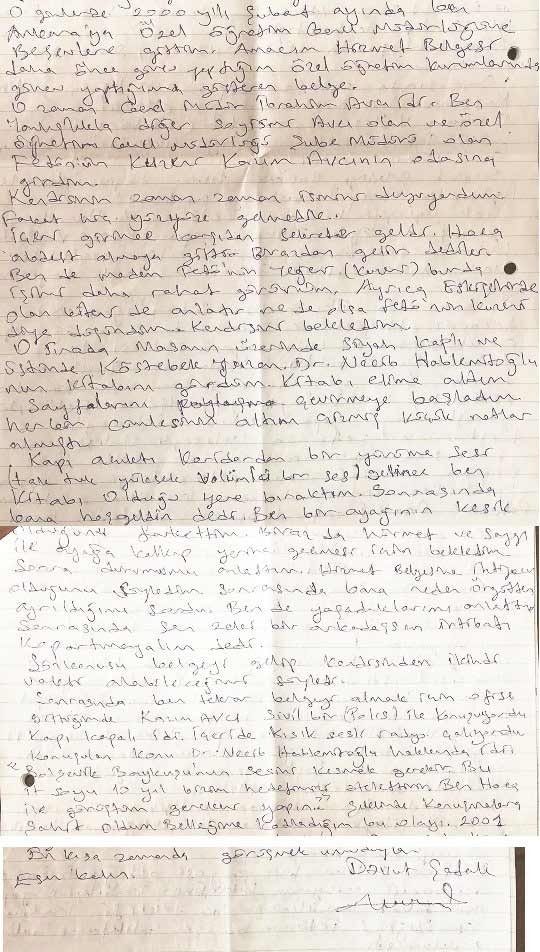 O günlerde 2000 yılı Şubat ayında ben
Ankara'ya Özel Öğretim Genel Müdürlüğüne
Beşevlere gittim. Amacım Hizmet Belgesi
daha önce görev yaptığım özel öğretim kurumlarında
görev yaptığımı gösteren belge.
O zaman Genel Müdür İbrahim Avcı idi. Ben
Yanlışlıkla diğer soyismi Avcı olan ve özel
öğretim Genel müdürlüğü Şube Müdürü olan
Fetönün Kuzeni Kazım Avcının odasına
girdim.
Kendisinin zaman zaman ismini duyuyordum.
Fakat hiç yüzyüze gelmedik.
İçeri girince karşıdan Sekreter geldi. Hoca
abdest almaya gitti. Birazdan gelir dediler.
Ben de madem Fetö'nin yeğeni (kuzeni) burada
işimi daha rahat görürüm, Ayrıca Eskişehirde
olan biteni de anlatır ne de olsa fetö'nün kuzeni
diye düşündüm. Kendisini bekledim.
O sırada Masanın üzerinde siyah kaplı ve
üstünde Köstebek yazan Dr. Necib Hablemitoğlu
nun kitabını gördüm. Kitabı elime aldım
Sayfalarını çevirmeye başladım
hemen cümlesinin altını çizmiş küçük notlar
almıştı.
Kapı açıktı Koridordan bir yürüme sesi
(tak tuk yüksek volümlü bir ses) gelince ben
kitabı olduğu yere bıraktım. Sonrasında
bana hoşgeldin dedi. Ben bir ayağının kesik
olduğunu farkettim. Biraz da hürmet ve saygı
ile ayağa kalkıp yerine geçmesi için bekledim
Sonra durumumu anlattım. Hizmet Belgesine ihtiyacım
olduğunu söyledim sonrasında bana neden Örgütten
ayrıldığımı sordu. Ben de yaşadıklarımı anlattım
Sonrasında sen zeki bir arkadaşsın irtibatı
Kopartmayalım dedi.
belgeyi gelip kendisinden ikindi
vakti alabileceğimi söyledi.
Sonrasında ben tekrar belgeyi almak için ofise
gittiğimde Kazım Avcı sivil bir (Polis) ile konuşuyordu
Kapı kapalı idi. İçeride kısık sesli radyo çalıyordu
Konuşulan konu Dr. Necib Hablemitoğlu hakkında idi
"Bolşevik Baykuşu'nun sesini kesmek gerekir. Bu
it soyu 10 yıl bizim hedefimizi Ben Hoca
ile görüştüm gerekeni yapın" şeklinde konuşmalara
Şahit oldum Belleğime kodladığım bu olayı 2001
Bi kısa zamanda görüşmek umuduyla
Esen kalın. Davut